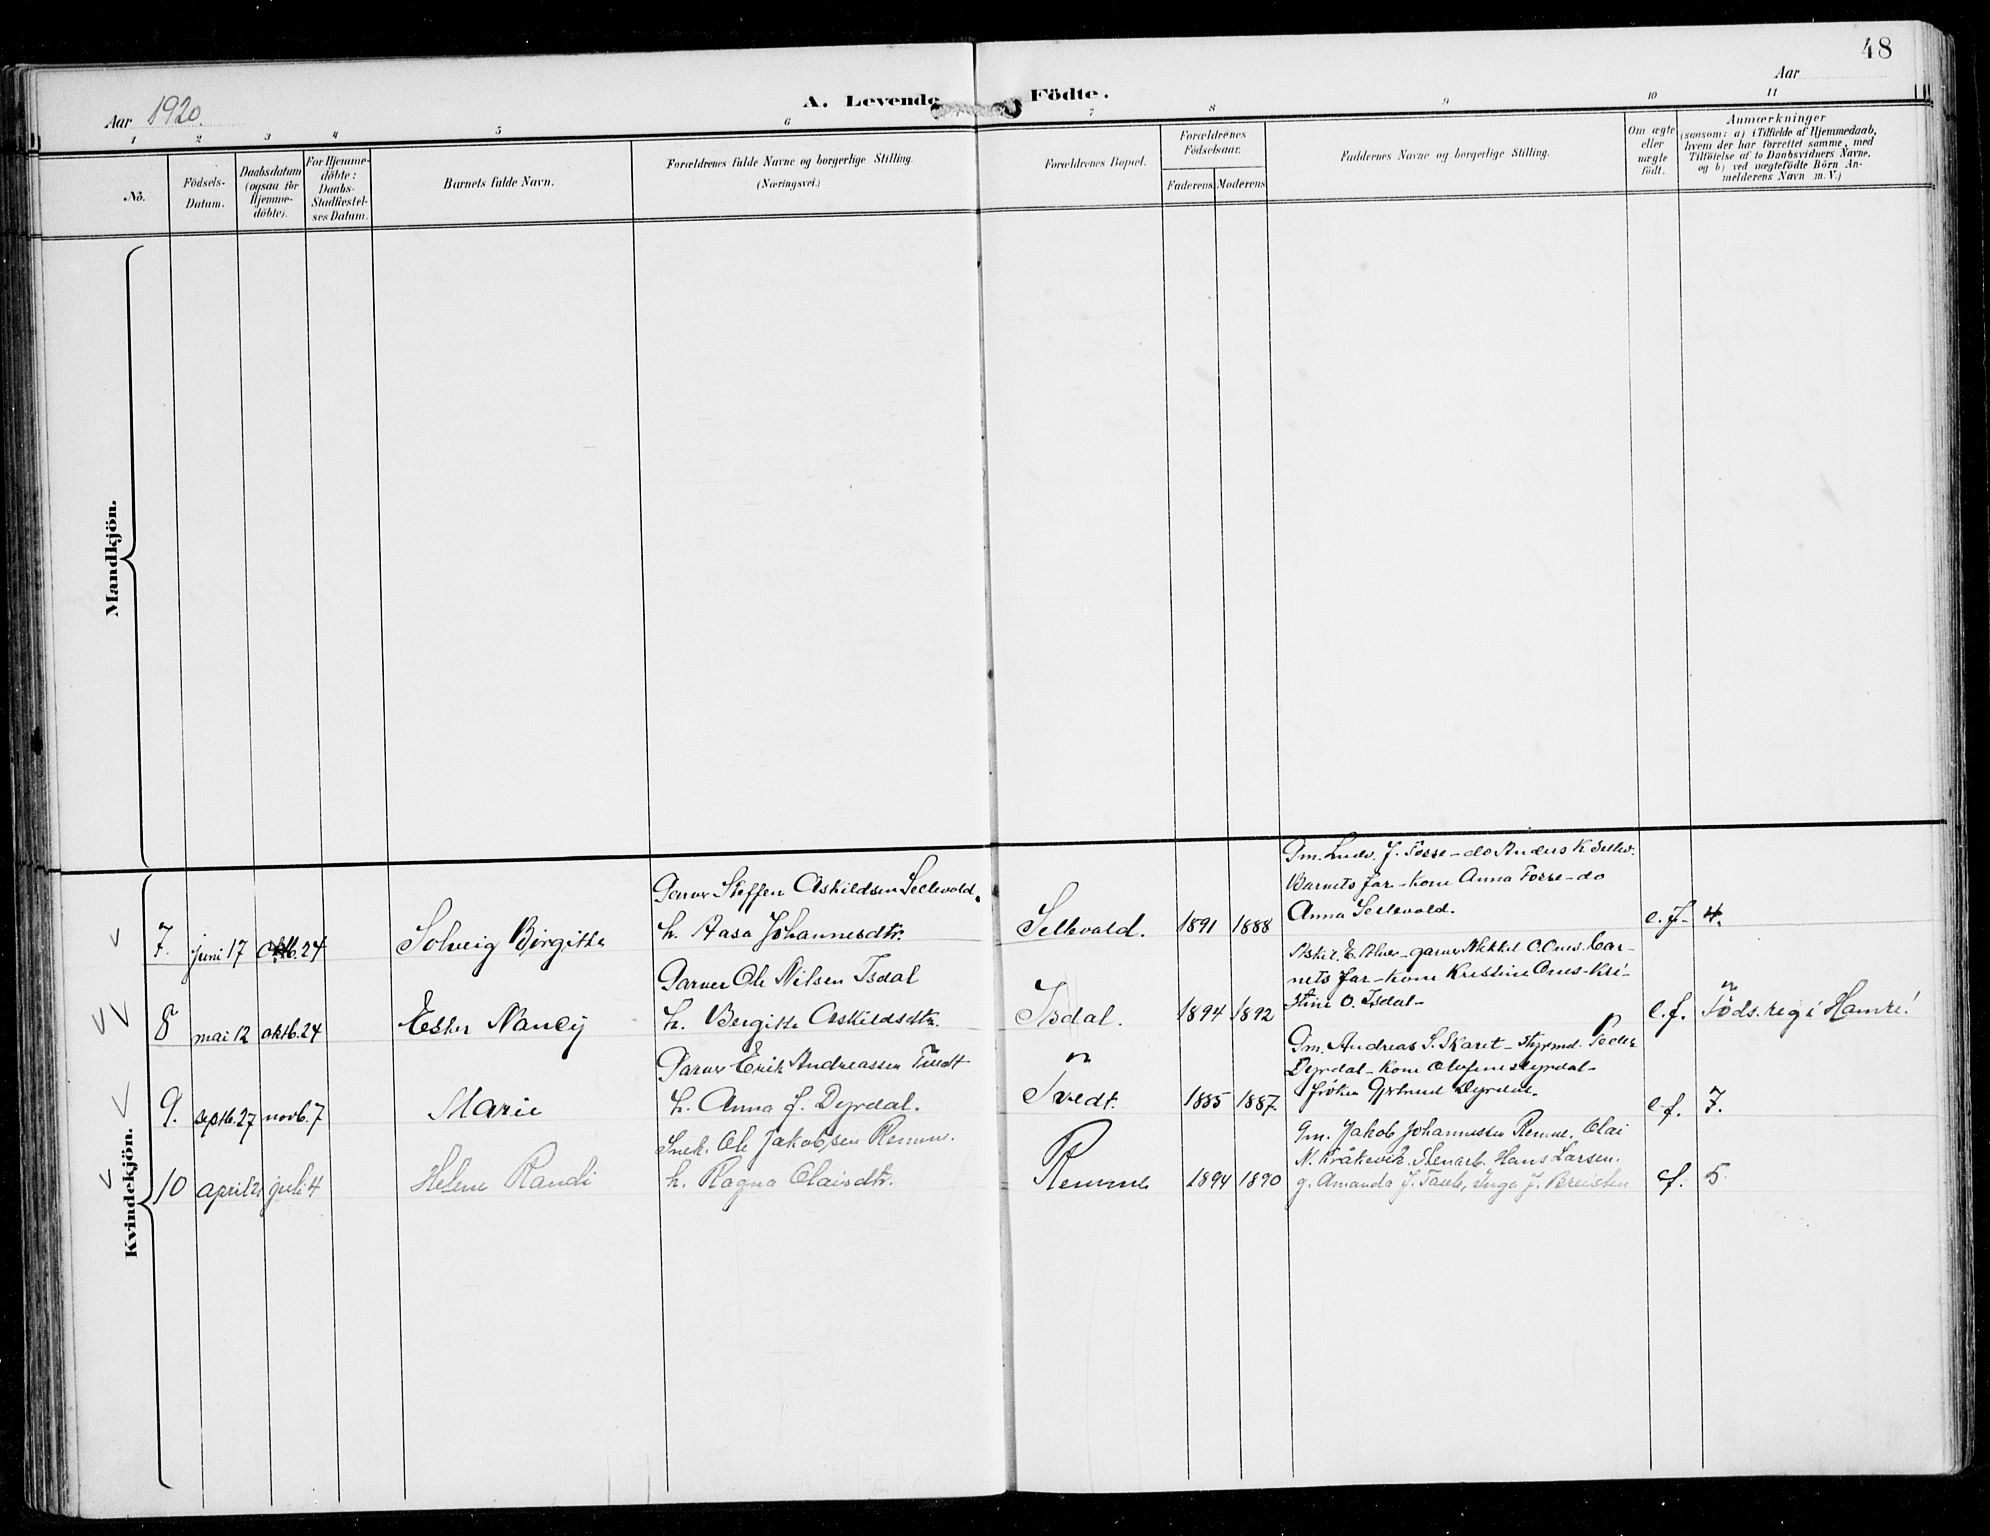 48
Aar 1920.
A. Levende Födte.
Aar
1 2 3 4 5 6 7 8 9 10 11
No.
Födsels-Datum.
Daabsdatum (ogsaa for Hjemme-döbte).
For Hjemme-döbte: Daabs-Stadfæstel-ses Datum.
Barnets fulde Navn.
Forældrenes fulde Navne og borgerlige Stilling. (Næringsvei.)
Forældrenes Bopæl.
Forældrenes Födselsaar.
Faderens Moderens
Faddernes Navne og borgerlige Stilling.
Om ægte eller uægte födt.
Anmærkninger
(saasom: a) i Tilfælde af Hjemmedaab,
hvem der har forrettet samme, med
Tilföielse af to Daabsvidners Navne,
og b) ved uægtefödte Börn An-
melderens Navn m. V.)
Mandkjön.
Kvindekjön.
7. juni 17 oktb. 24 Solveig Birgitte
Garver Steffen Askildsen Sellevold.
h. Aasa Johannesdtr.
Sellevold. 1891 1888
Gm. Ludv. J. Fosse - do Anders K. Sellev.
Barnets far - kone Anna Fosse - do
Anna Sellevold.
e. f. 4.
8 mai 12 oktb. 24 Esther Nancy
Garver Ole Nilsen Isdal
h. Bergitte Askildsdtr.
Isdal. 1894 1892
garver Mikkel O. Bar-
nets far - kone Kristine
stine O. Isdal -
e. f. Föds. reg i Hamre!
9. septb. 27 novb. 7 Marie
Garver Erik Andreassen Tvedt
h. Anna J. Dyrdal.
Tvedt. 1885 1887.
Gm. Andreas S. Skaret - styrmd. Peder
Dyrdal - kone Olufine Dyrdal -
fröken Gjertrud Dyrdal.
e. f. 7.
10 april 21 juli 4 Helene Randi
Snek. Ole Jakobsen Remme.
h. Ragna Olaisdtr.
Remme 1894 1890
Gm. Jakob Johannessen Remme, Olai
N. Kråkevik. Stenarb. Hans Larsen.
g. Amanda J. Inga J.
ef. 5.